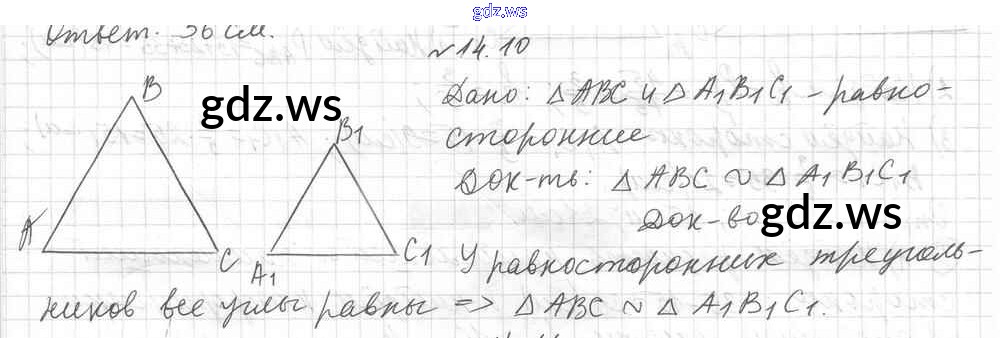 gdz.ws
Ответ. 36 см.
№14.10
Дано: △ABC и △A1B1C1 - равно-
сторонние
Док-ть: △ABC ~ △A1B1C1
Док-во
У равносторонних треуголь-
ников все углы равны => △ABC ~ △A1B1C1.
B
B1
A
C
A1
C1
gdz.ws
gdz.ws